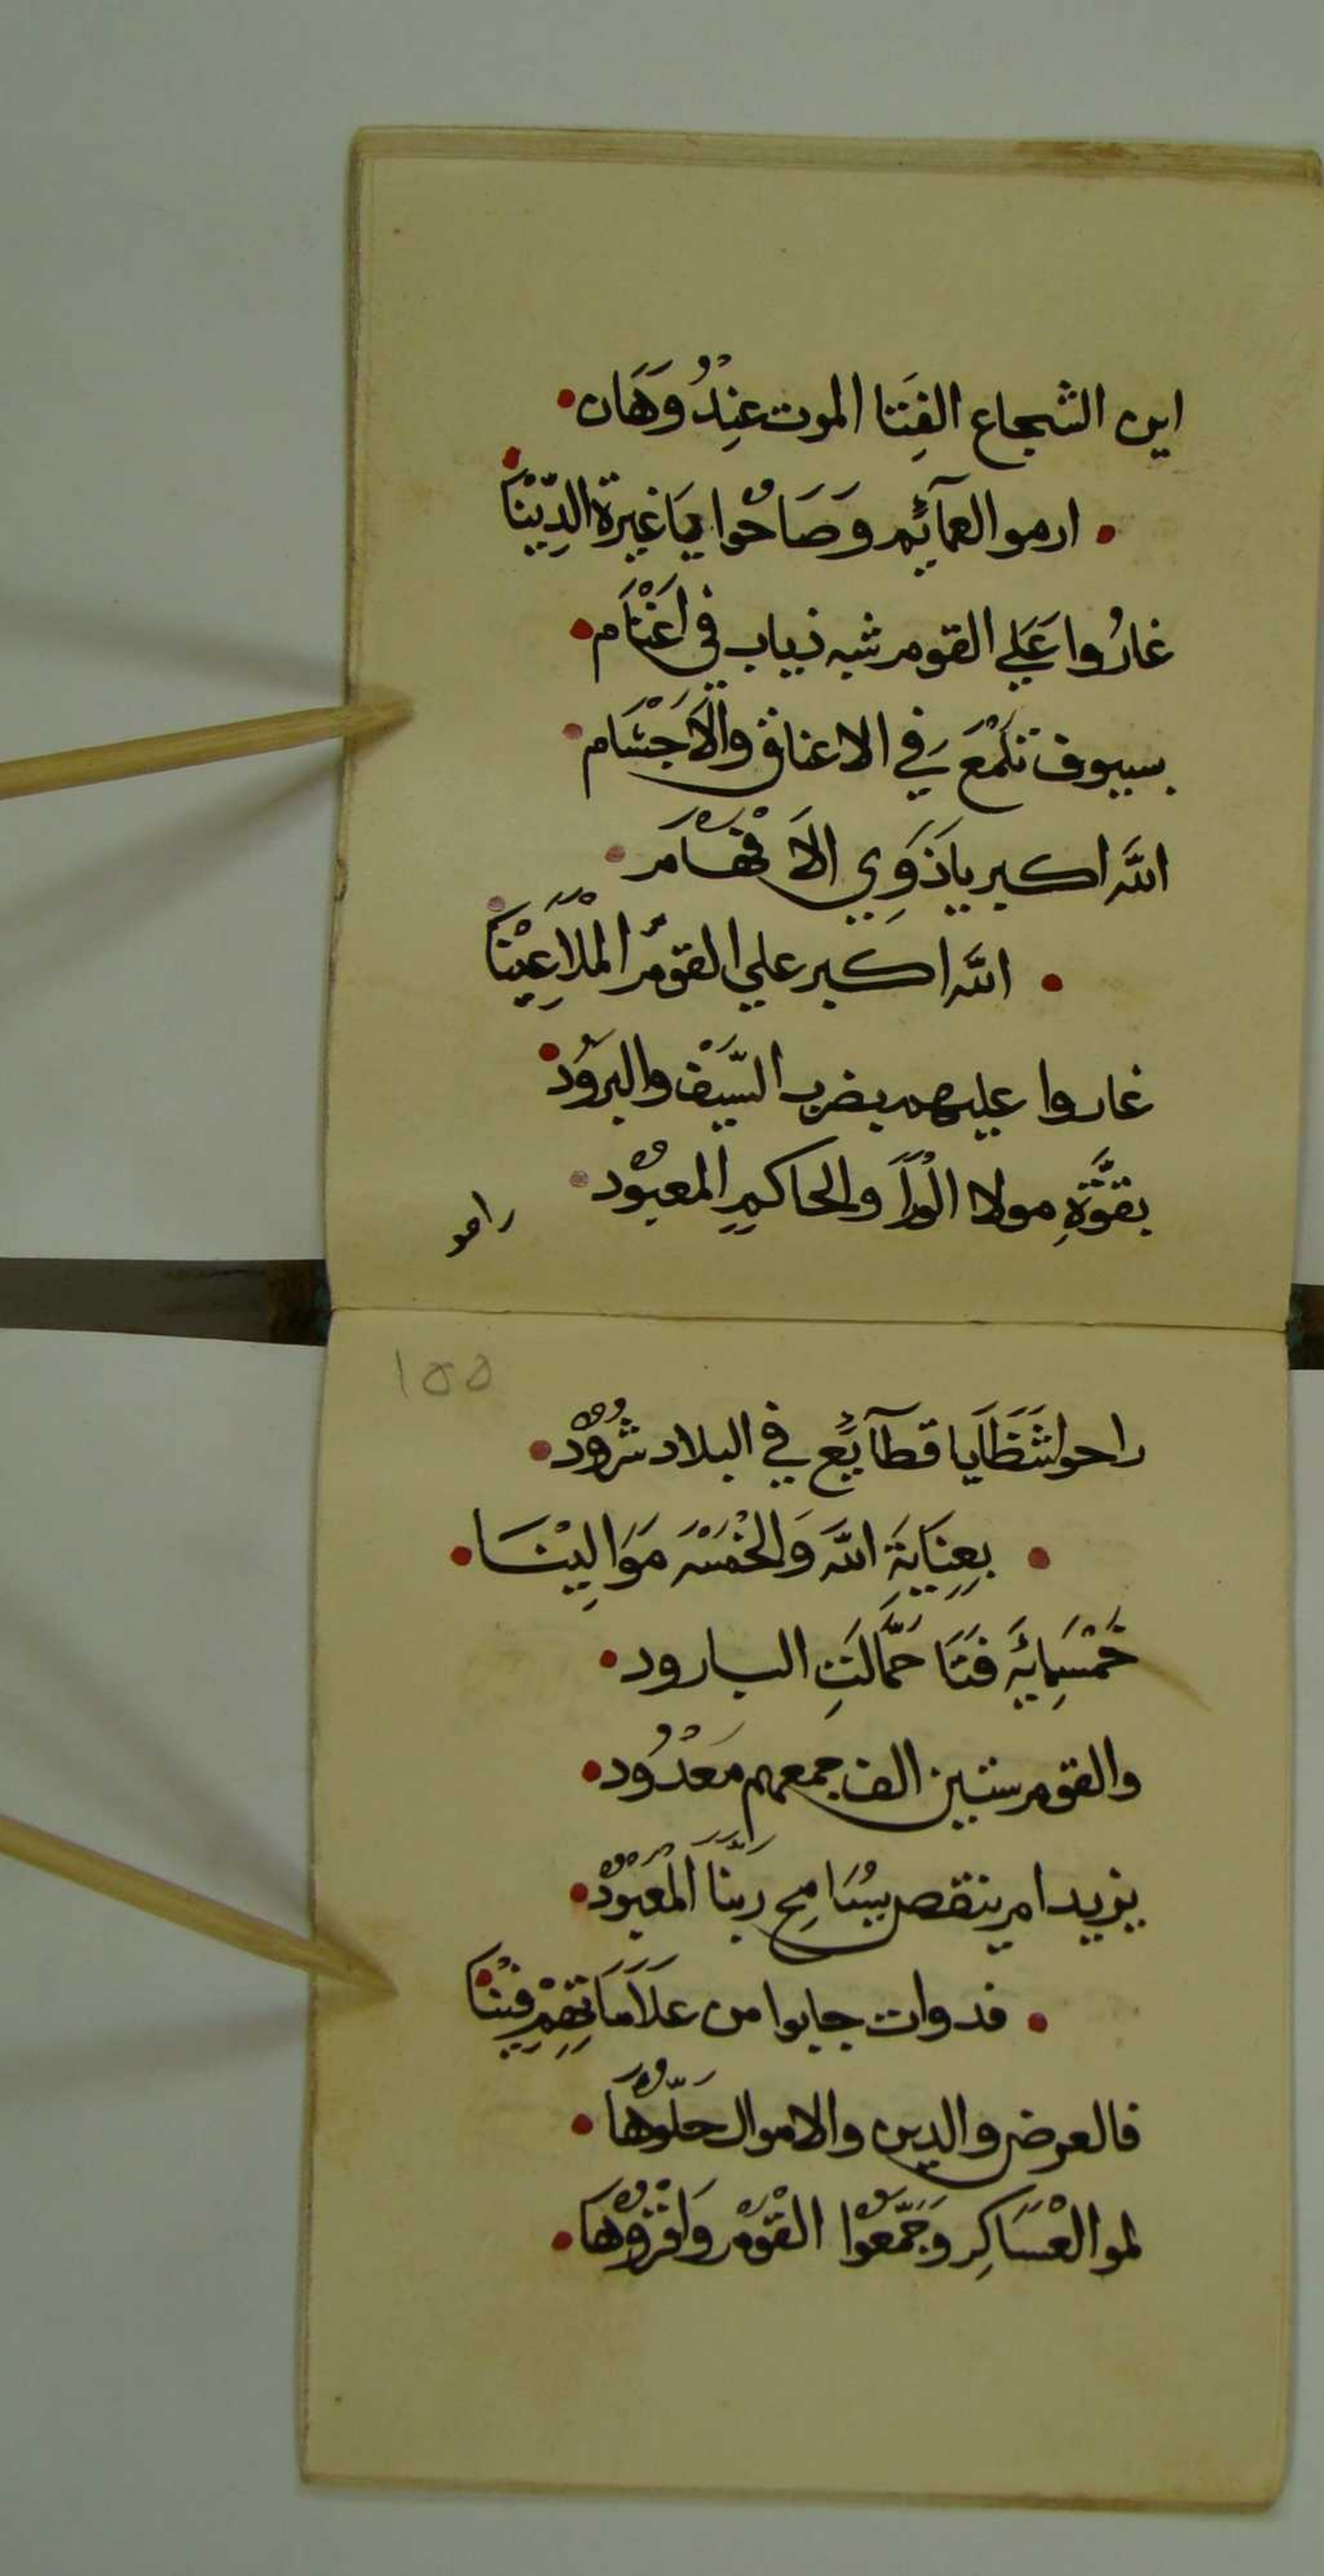 اين الشجاع الفِتَا الموت عِنِدُ وَهَان
ارموا العمآئم وَصَاحُوا يَا غيرة الدِّيْنَا
غارُوا عَلي القوم شبه ذياب في اَغْنَام
بسيوف تَلْمَعَ في الاعناق والاَجْسَام
الله اكبر يا ذَوِي الاَفْهَام
الله اكبر علي القومُ المْلاَعِيْنَا
غاروا عليهم بضرب السَّيْف والبرُود
بقوَّةِ مولا الْوَرَا والحاكمِ المعبُود
راحو
١٥٥
راحوا شَظَايا قطآيع في البلاد شرُوْد
بِعِنَايَةِ الله وَالخْمْسَه مَوَالِيْنَا
خَمْسِمايَه فَتَا حَمَّالَتِ البارود
والقوم ستين الف جمعهم مَعْدُود
يزيد ام ينقص يسُامِح رَبّنَا المْعبُوْد
فدوات جابوا من عَلاَمَاتِهِمْ فِيْنَا
فالعرض والدين والاموال حَلّوُهَا
لموا الْعْسَاكِر وَجَمّعوُا القْوُم وَاقْروُهَا